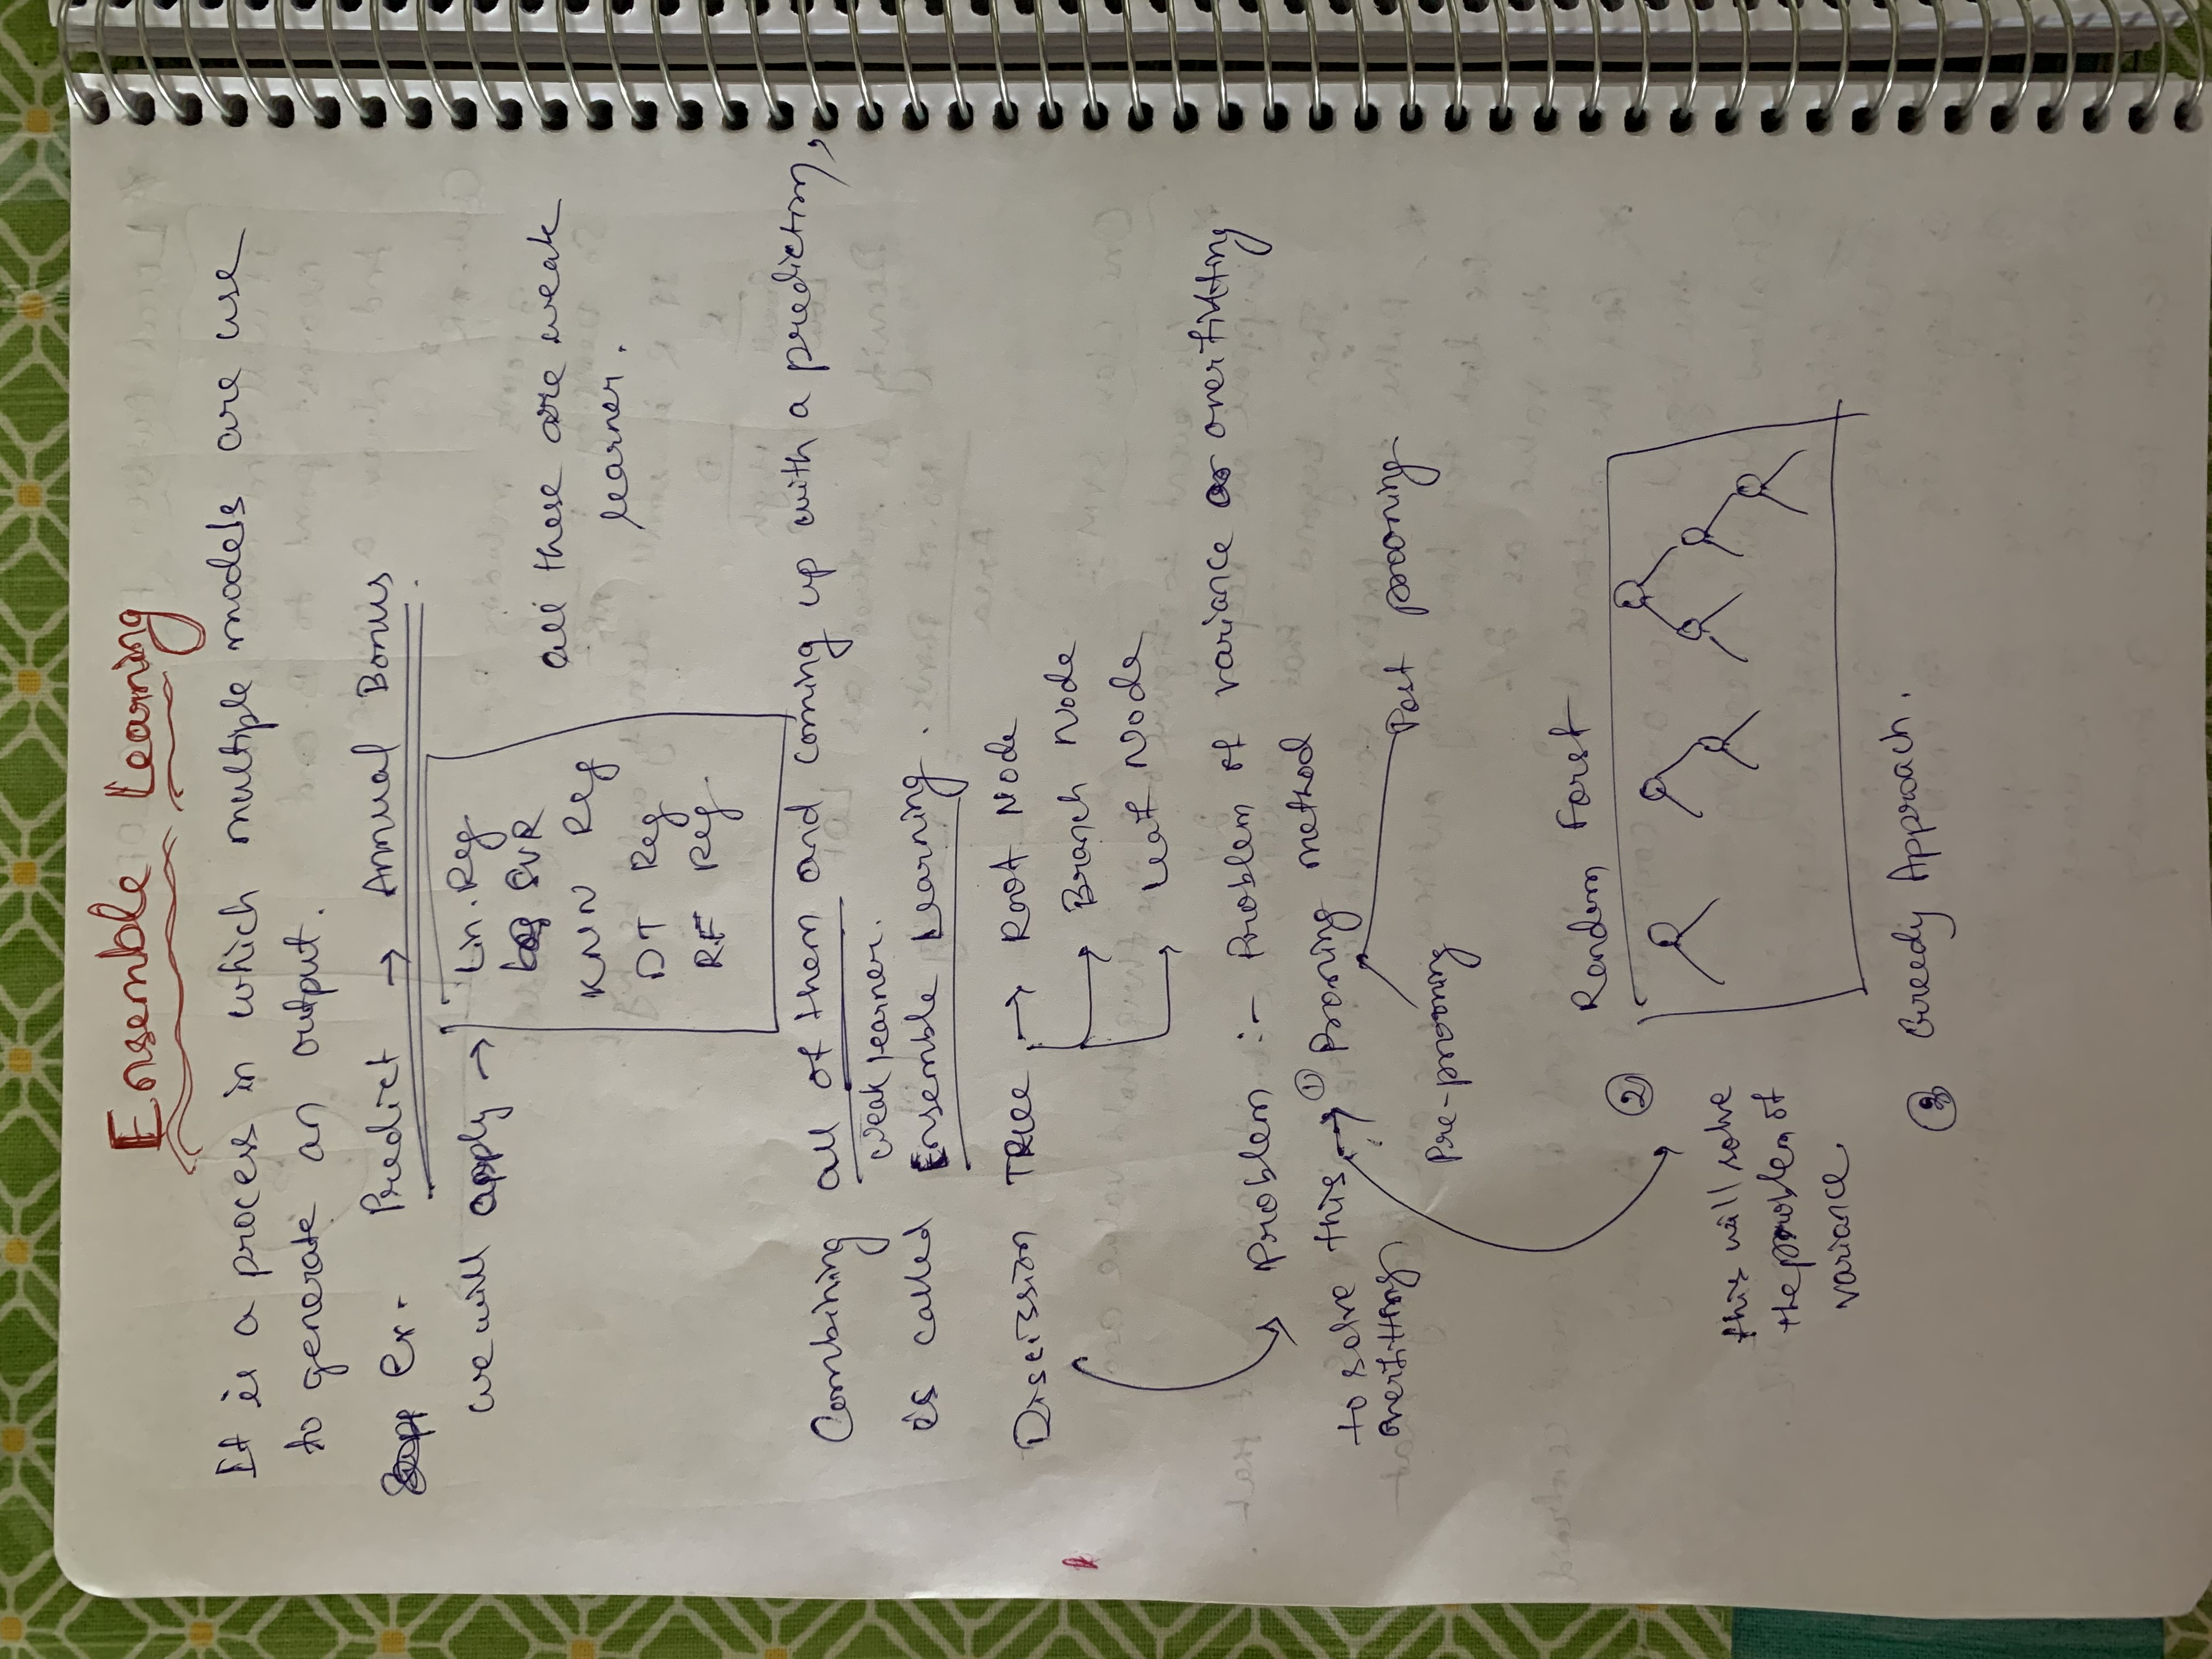 Ensemble Learning
It is a process in which multiple models are use
to generate an output.
Ex. Predict → Annual Bonus
we will apply → Lin. Reg
SVR
KNN Reg
DT Reg
RF Reg.
all these are weak
learner.
Combining all of them and coming up with a prediction,
weak learner.
is called Ensemble Learning.
Discission TRee → Root Node
→ Branch Node
→ Leaf Node
Problem :- Problem of variance or overfitting
to solve this → ① Prooning method
overfitting
Pre-prooning
Post prooning
② Random Forst
this will solve
the problem of
variance.
③ Greedy Approach.